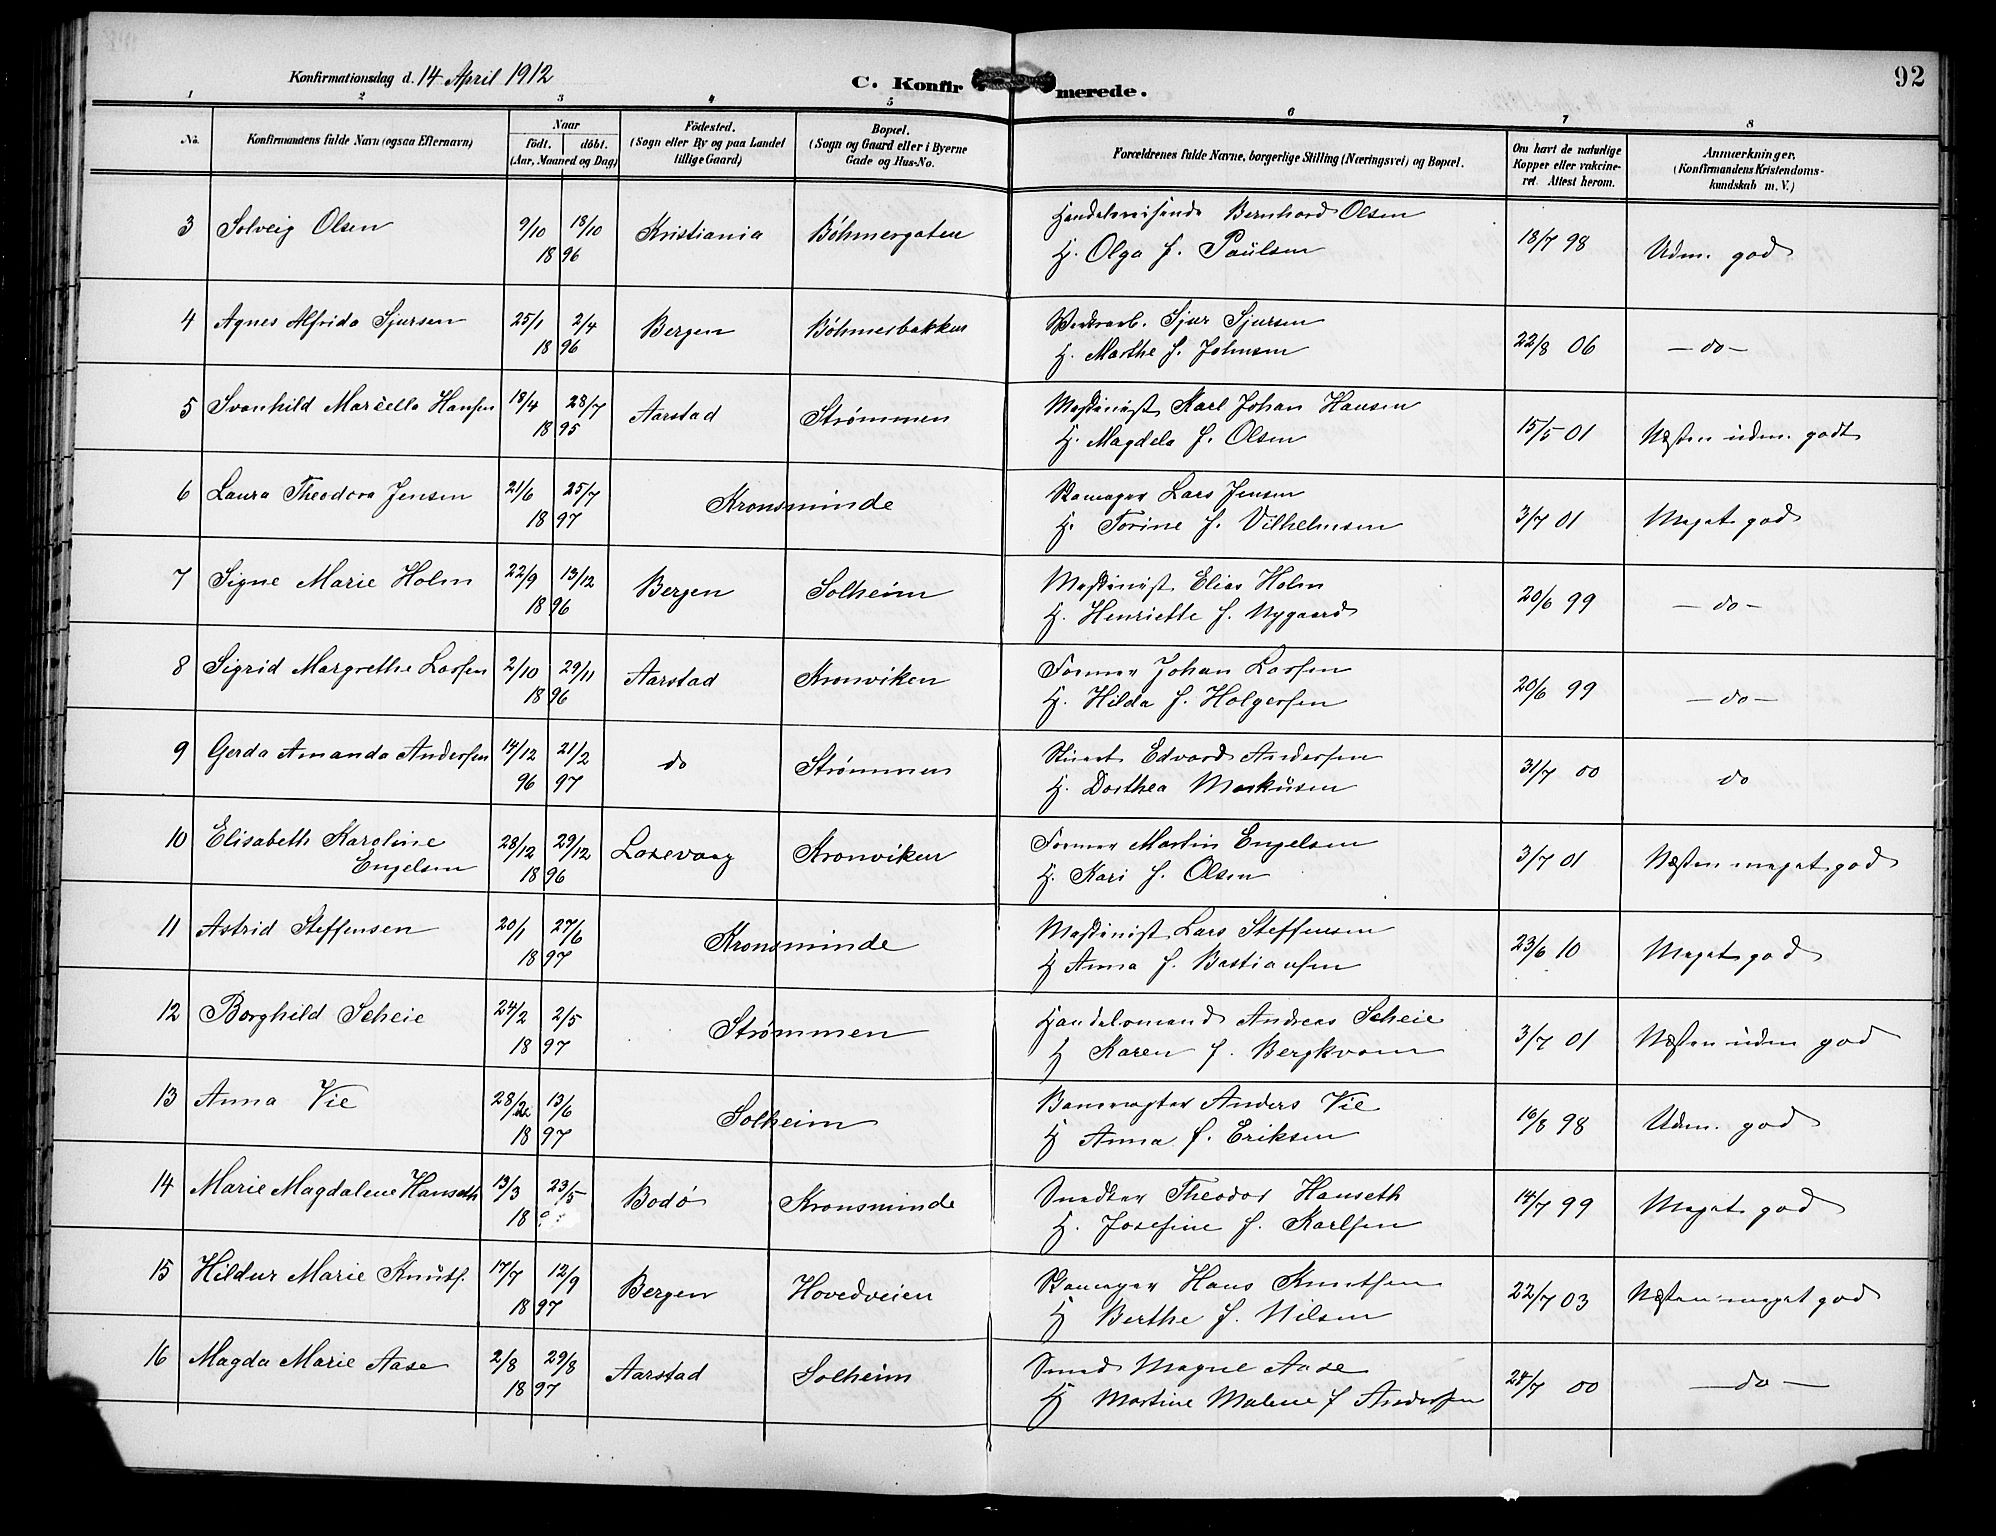 92
Konfirmationsdag d. 14 April 1912
C. Konfirmerede.
1 2 3 4 5 6 7 8
No. Konfirmandens fulde Navn (ogsaa Efternavn) Naar födt. döbt. (Aar, Maaned og Dag) Födested. (Sogn eller By og paa Landet tillige Gaard) Bopæl. (Sogn og Gaard eller i Byerne Gade og Hus-No. Forældrenes fulde Navne, borgerlige Stilling (Næringsvei) og Bopæl. Om havt de naturlige Kopper eller vakcineret. Attest herom. Anmærkninger. (Konfirmandens Kristendomskundskab m. V.)
3 Solveig Olsen 9/10 18/10 1896 Kristiania Böhmergaten Handelsreisende Bernhard Olsen
H. Olga f. Paulsen 18/7 98 Udm. god
4 Agnes Alfrida Sjursen 25/1 2/4 1896 Bergen Böhmerbakken Verksarb. Sjur Sjursen
H. Marthe f. Johnsen 22/8 06 - do -
5 Svanhild Marcella Hansen 18/4 28/7 1895 Aarstad Strømmen Maskinist Karl Johan Hansen
H. Magdela f. Olsen 15/5 01 Næsten udm. godt
6 Laura Theodora Jensen 21/6 25/7 1897 Kronsminde Skomager Lars Jensen
H. Torine f. Vilhelmsen 3/7 01 Meget god
7 Signe Marie Holm 22/9 13/12 1896 Bergen Solheim Maskinist Elias Holm
H. Henriette f. Nygaard 20/6 99 - do -
8 Sigrid Margrethe Larsen 2/10 29/11 1896 Aarstad Kronviken Former Johan Larsen
H. Hilda f. Holgersen 20/6 99 - do -
9 Gerda Amanda Andersen 14/12 96 21/2 97 do Strømmen Stuert Edvard Andersen
H. Dorthea Markusen 31/7 00 do
10 Elisabeth Karoline
Engelsen 28/12 29/12 1896 Laxevaag Kronviken Former Martin Engelsen
H. Kari f. Olsen 3/7 01 Næsten meget god
11 Astrid Steffensen 20/1 27/6 1897 Kronsminde Maskinist Lars Steffensen
H Anna f. Bastiansen 23/6 10 Meget god
12 Borghild Scheie 24/2 2/5 1897 Strømmen Handelsmand Andreas Scheie
H Karen f. Bergkvam 3/7 01 Næsten udm god
13 Anna Vie 28/2 13/6 1897 Solheim Banevogter Anders Vie
H Anna f. Eriksen 16/8 98 Udm. god
14 Marie Magdalene Hanseth 13/3 23/5 18 Bodø Kronsminde Snedker Theodor Hanseth
H. Josefine f. Karlsen 14/7 99 Meget god
15 Hildur Marie Knuts. 17/7 12/9 1897 Bergen Hovedveien Skomager Hans Knutsen
H Berthe f. Nilsen 22/7 03 Næsten meget god
16 Magda Marie Aase 2/8 29/8 1897 Aarstad Solheim Smed Magne Aase
H Martine Malene f Andersen 28/7 00 - do -